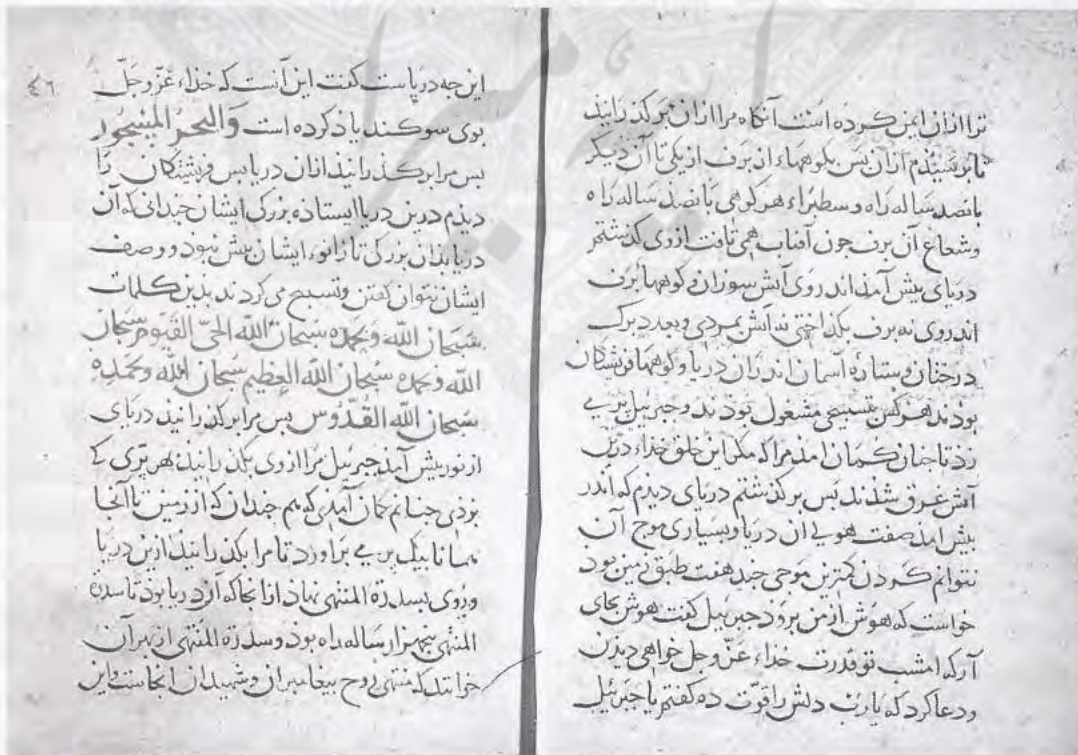 ترا ازان ایمن کرده است آنکاه مرا ازان بر کذرانید
تا بو شیندم ازان بس بکوهها ان برف از یکی تا آن دیکر
بانصد ساله راه و سطبراء هر کوهی بانصد ساله راه
وشعاع آن برف جون آفتاب همی تافت ازوی کذشتم
دریای بیش آمد اندر وی آتش سوزان و کوهها برف
اندروی نه برف بکداختی نه آتش بمردی و بعدد برک
درختان و ستارۀ اسمان اندران دریا و کوهها فریشتکان
بودند هر کس بتسبیحی مشغول بودند و جبرئیل بریی
زد تا جنان کمان امد مرا که مکر این خلق خداء درین
آتش غرق شدند بس بر کذشتم دریای دیدم که اندر
بیش امد صفت هولی ان دریا و بسیاری موج آن
نتوانم کردن کمترین موجی جند هفت طبق زمین بود
خواست که هوش از من برود جبرئیل کفت هوش بجای
آر که امشب تو قدرت خداء عزّ و جل خواهی دیدن
ودعا کرد که یا رب دلش را قوّت ده کفتم یا جبرئیل
٤٦
این جه دریاست کفت این آنست که خداء عزّ و جلّ
بوی سوکند یاد کرده است وَالبحرُ المسجُور
بس مرا بر کذرانید ازان دریا بس فریشتکان را
دیدم درین دریا ایستاده بزرکی ایشان جندانی که آن
دریا بدان بزرکی تا زانوء ایشان بیش نبود و وصف
ایشان نتوان کفتن وتسبیح می کردند بدین کلمات
سُبحان الله وبحمده سبحان الله الحیّ القیوم سبحان
الله وبحمده سبحان الله العظیم سبحان الله وبحمده
سبحان الله القدّوس بس مرا بر کذرانید دریای
از نور بیش آمد جبرئیل مرا ازوی بکذرانید بهر بری که
بزدی جنانم کمان آمدی که بم جندان که از زمین تا آنجا
همانا بیک بریی براورد تا مرا بکذرانید ازین دریا
وروی بسدرة المنتهی نهاد از انجا که آن دریا بود تا سدرة
المنتهی سیهزار ساله راه بود وسدرة المنتهی از بهر آن
خوانند که منتهی روح بیغامبران وشهیدان انجاست واین